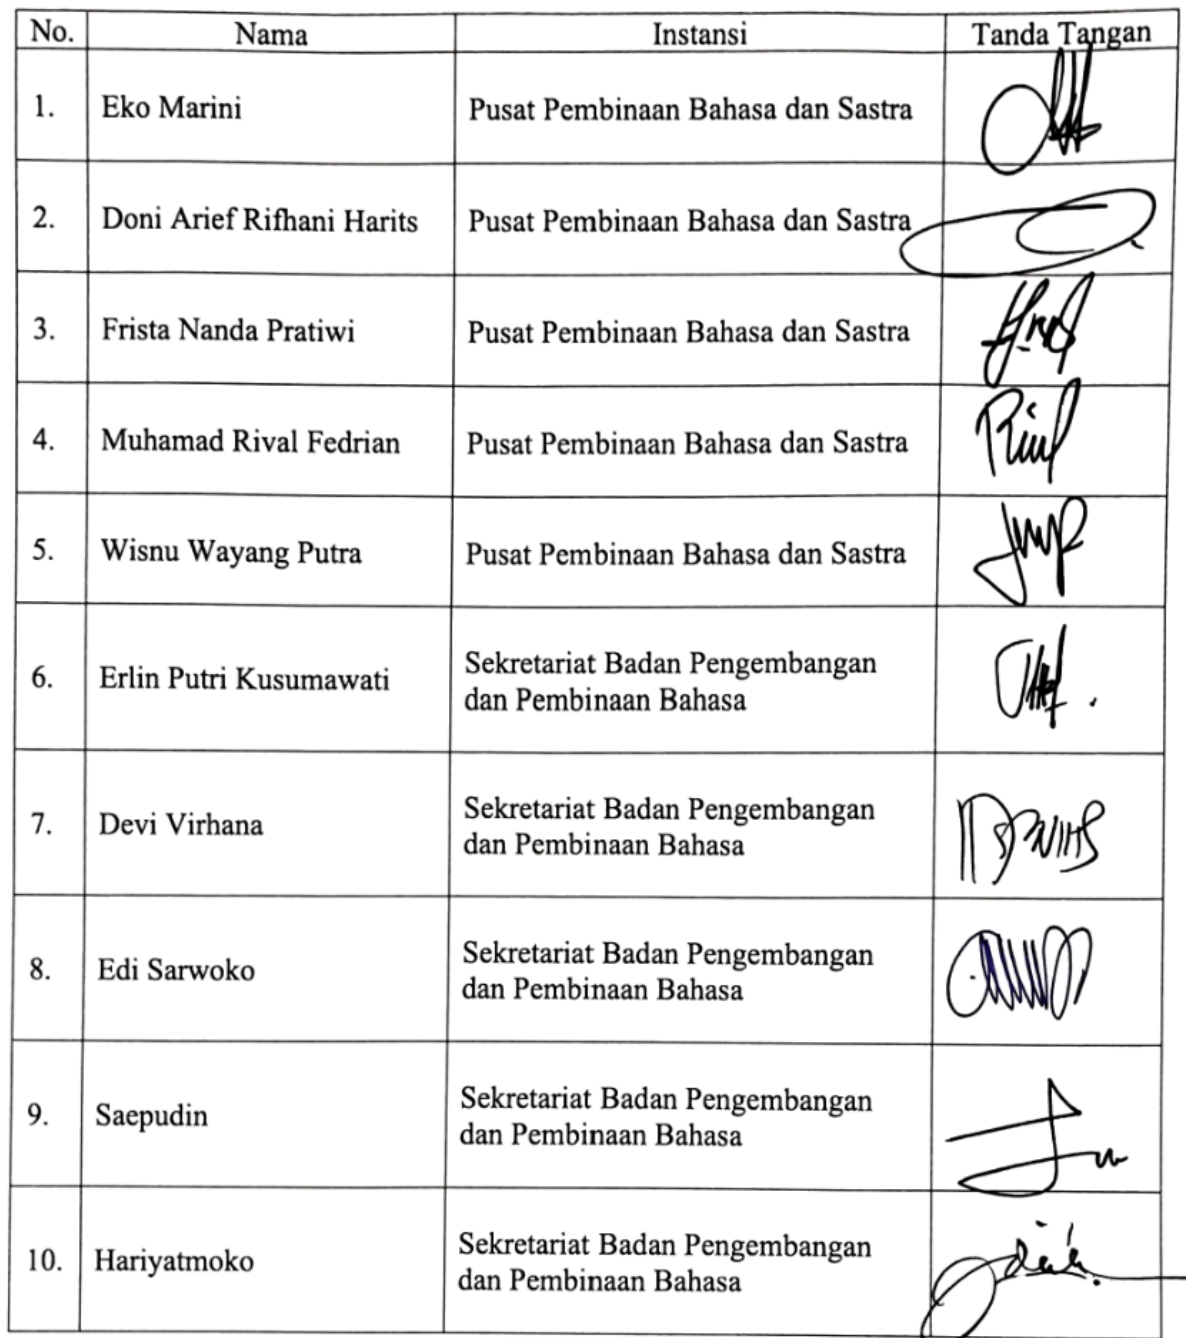 No. Nama Instansi Tanda Tangan
1. Eko Marini Pusat Pembinaan Bahasa dan Sastra
2. Doni Arief Rifhani Harits Pusat Pembinaan Bahasa dan Sastra
3. Frista Nanda Pratiwi Pusat Pembinaan Bahasa dan Sastra
4. Muhamad Rival Fedrian Pusat Pembinaan Bahasa dan Sastra
5. Wisnu Wayang Putra Pusat Pembinaan Bahasa dan Sastra
6. Erlin Putri Kusumawati Sekretariat Badan Pengembangan
dan Pembinaan Bahasa
7. Devi Virhana Sekretariat Badan Pengembangan
dan Pembinaan Bahasa
8. Edi Sarwoko Sekretariat Badan Pengembangan
dan Pembinaan Bahasa
9. Saepudin Sekretariat Badan Pengembangan
dan Pembinaan Bahasa
10. Hariyatmoko Sekretariat Badan Pengembangan
dan Pembinaan Bahasa